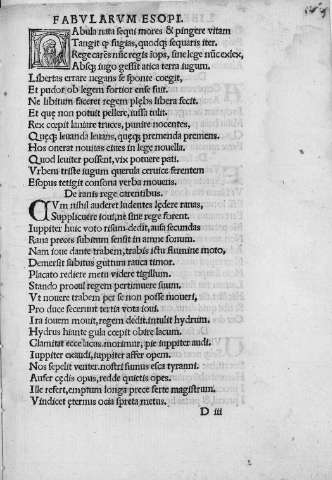 FABVLARVM ESOPI.
FAbula nata sequi mores & pingere vitam
Tangit ꝙ fugias, quodqȝ sequaris iter.
Rege carēs nūc regis iops, sine lege nūc exlex,
Absqȝ iugo gessit attica terra iugum.
Libertas errare negans se sponte coegit,
Et pudor ob legem fortior ense fuit.
Ne libitum faceret regem plebs libera fecit.
Et que non potuit pellere, iussa tulit.
Rex cœpit laniare truces, punire nocentes,
Queqȝ leuanda leuans, queqȝ premenda premens.
Hos onerat nouitas ciues in lege nouella.
Quod leuiter possent, vix potuere pati.
Vrbem triste iugum querula ceruice ferentem
Esopus tetigit consona verba mouens.
De ranis rege carentibus.
CVm nihil auderet ludentes lędere ranas,
Supplicuere ioui, ne sine rege forent.
Iuppiter huic voto risum dedit, ausa secundas
Rana preces subitum sensit in amne sonum.
Nam ioue dante trabem, trabis ictu flumine moto,
Demersit subitus guttura rauca timor.
Placato rediere metu videre tigillum.
Stando procul regem pertimuere suum.
Vt nouere trabem per se non posse moueri,
Pro duce fecerunt tertia vota ioui.
Ira iouem mouit, regem dedit, intulit hydrum.
Hydrus hiante gula cœpit obire lacum.
Clamitat ecce lacus, morimur, pie iuppiter audi.
Iuppiter exaudi, iuppiter affer opem.
Nos sepelit venter. nostri sumus esca tyranni.
Aufer cędis opus, redde quietis opes.
Ille refert, emptum longa prece ferte magistrum.
Vindicet ęternus ocia spreta metus.
D iii